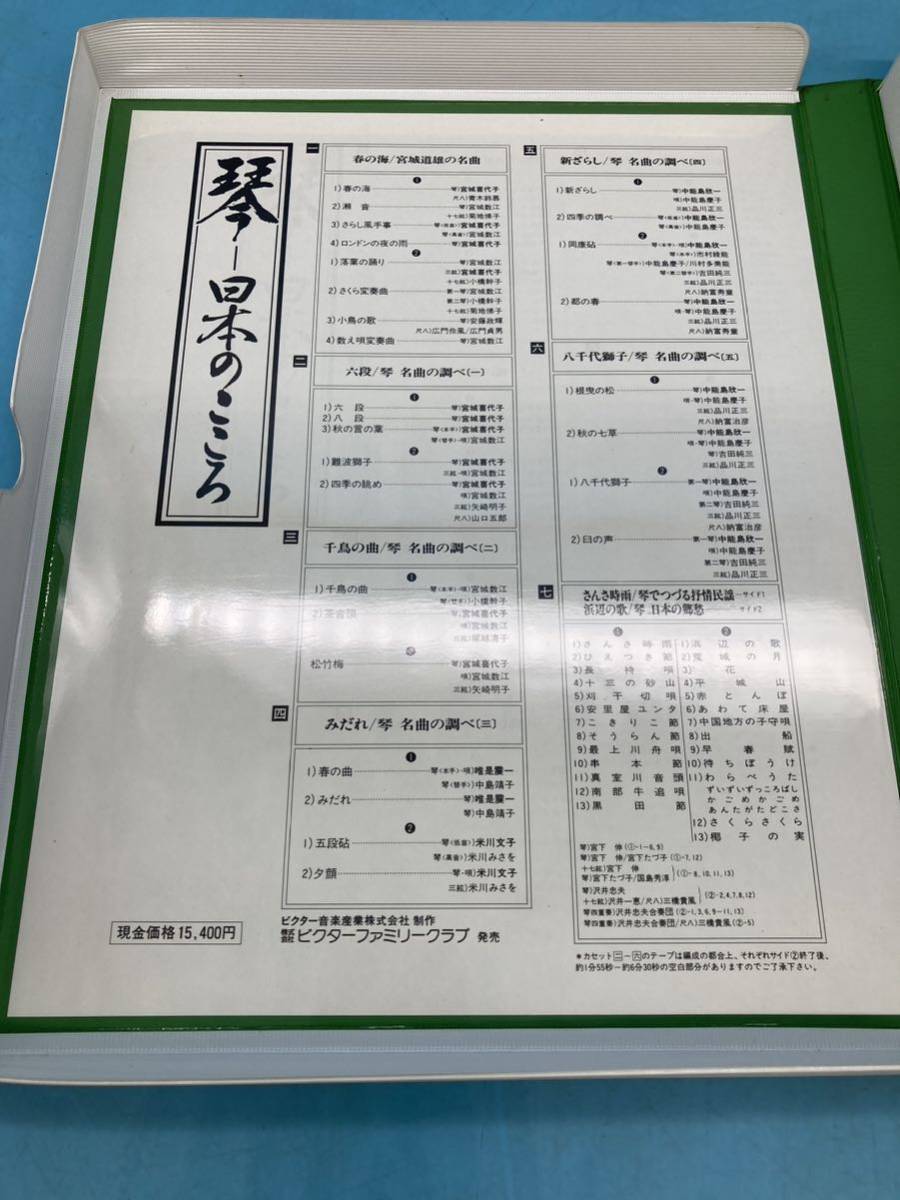 琴─日本のこころ
一
春の海/宮城道雄の名曲
❶
1)春の海 琴)宮城喜代子
尺八)青木鈴慕
2)瀬音 琴)宮城数江
十七絃)菊地悌子
3)さらし風手事 琴(低音))宮城喜代子
琴(高音))宮城数江
4)ロンドンの夜の雨 琴)宮城喜代子
❷
1)落葉の踊り 琴)宮城数江
三絃)宮城喜代子
十七絃)小橋幹子
2)さくら変奏曲 第一琴)宮城数江
第二琴)小橋幹子
十七絃)菊地悌子
3)小鳥の歌 琴)安藤政輝
尺八)広門伶風/広門貞男
4)数え唄変奏曲 琴)宮城数江
二
六段/琴 名曲の調べ(一)
❶
1)六段 琴)宮城喜代子
2)八段 琴)宮城喜代子
3)秋の言の葉 琴(本手))宮城喜代子
琴(替手)・唄)宮城数江
❷
1)難波獅子 琴)宮城喜代子
三絃・唄)宮城数江
2)四季の眺め 琴)宮城喜代子
唄)宮城数江
三絃)矢崎明子
尺八)山口五郎
三
千鳥の曲/琴 名曲の調べ(二)
❶
1)千鳥の曲 琴(本手)・唄)宮城数江
琴(替手))小橋幹子
2)茶音頭 琴)宮城喜代子
唄)宮城数江
❷
松竹梅 琴)宮城喜代子
唄)宮城数江
三絃)矢崎明子
四
みだれ/琴 名曲の調べ(三)
❶
1)春の曲 琴(本手)・唄)唯是震一
琴(替手))中島靖子
2)みだれ 琴)唯是震一
琴)中島靖子
❷
1)五段砧 琴(低音))米川文子
琴(高音))米川みさを
2)夕顔 琴・唄)米川文子
三絃)米川みさを
五
新ざらし/琴 名曲の調べ(四)
❶
1)新ざらし 琴)中能島欣一
唄)中能島慶子
三絃)品川正三
2)四季の調べ 琴(低音))中能島欣一
琴(高音))中能島慶子
❷
1)岡康砧 琴(本手)・唄)中能島欣一
琴(本手))市村綾能
琴(第一替手))中能島慶子/川村多美能
琴(第二替手))吉田純三
三絃)品川正三
尺八)納富寿童
2)都の春 琴)中能島欣一
唄)中能島慶子
三絃)品川正三
尺八)納富寿童
六
八千代獅子/琴 名曲の調べ(五)
❶
1)根曳の松 琴)中能島欣一
唄・琴)中能島慶子
三絃)品川正三
尺八)納富治彦
2)秋の七草 琴)中能島欣一
唄・琴)中能島慶子
琴)吉田純三
三絃)品川正三
❷
1)八千代獅子 第一琴)中能島欣一
唄)中能島慶子
第二琴)吉田純三
三絃)品川正三
尺八)納富治彦
2)臼の声 第一琴)中能島欣一
唄)中能島慶子
第二琴)吉田純三
三絃)品川正三
七
さんさ時雨/琴でつづる抒情民謡─サイド1
浜辺の歌/琴、日本の郷愁─サイド2
❶
1)さんさ時雨
2)ひえつき節
3)長持唄
4)十三の砂山
5)刈干切唄
6)安里屋ユンタ
7)こきりこ節
8)そうらん節
9)最上川舟唄
10)串本節
11)真室川音頭
12)南部牛追唄
13)黒田節
❷
1)浜辺の歌
2)荒城の月
3)花
4)平城山
5)赤とんぼ
6)あわて床屋
7)中国地方の子守唄
8)出船
9)早春賦
10)待ちぼうけ
11)わらべうた
ずいずいずっころばし
かごめかごめ
あんたがたどこさ
12)さくらさくら
13)椰子の実
琴)宮下伸(①-1~6,9)
琴)宮下伸/宮下たづ子(①-7,12)
十七絃)宮下伸
琴)宮下たづ子/国島秀淳 (①-8,10,11,13)
琴)沢井忠夫
十七絃)沢井一恵/尺八)三橋貴風 (②-2,4,7,8,12)
琴四重奏)沢井忠夫合奏団(②-1,3,6,9~11,13)
琴四重奏)沢井忠夫合奏団/尺八)三橋貴風(②-5)
現金価格15,400円
ビクター音楽産業株式会社 制作
株式会社ビクターファミリークラブ 発売
*カセット二~六のテープは編成の都合上、それぞれサイド②終了後、
約1分55秒~約6分30秒の空白部分がありますのでご了承下さい。